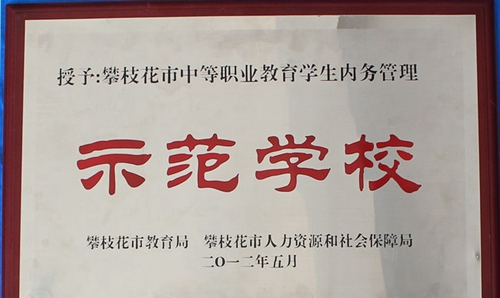 授予:攀枝花市中等职业教育学生内务管理
示范学校
攀枝花市教育局 攀枝花市人力资源和社会保障局
二〇一二年五月